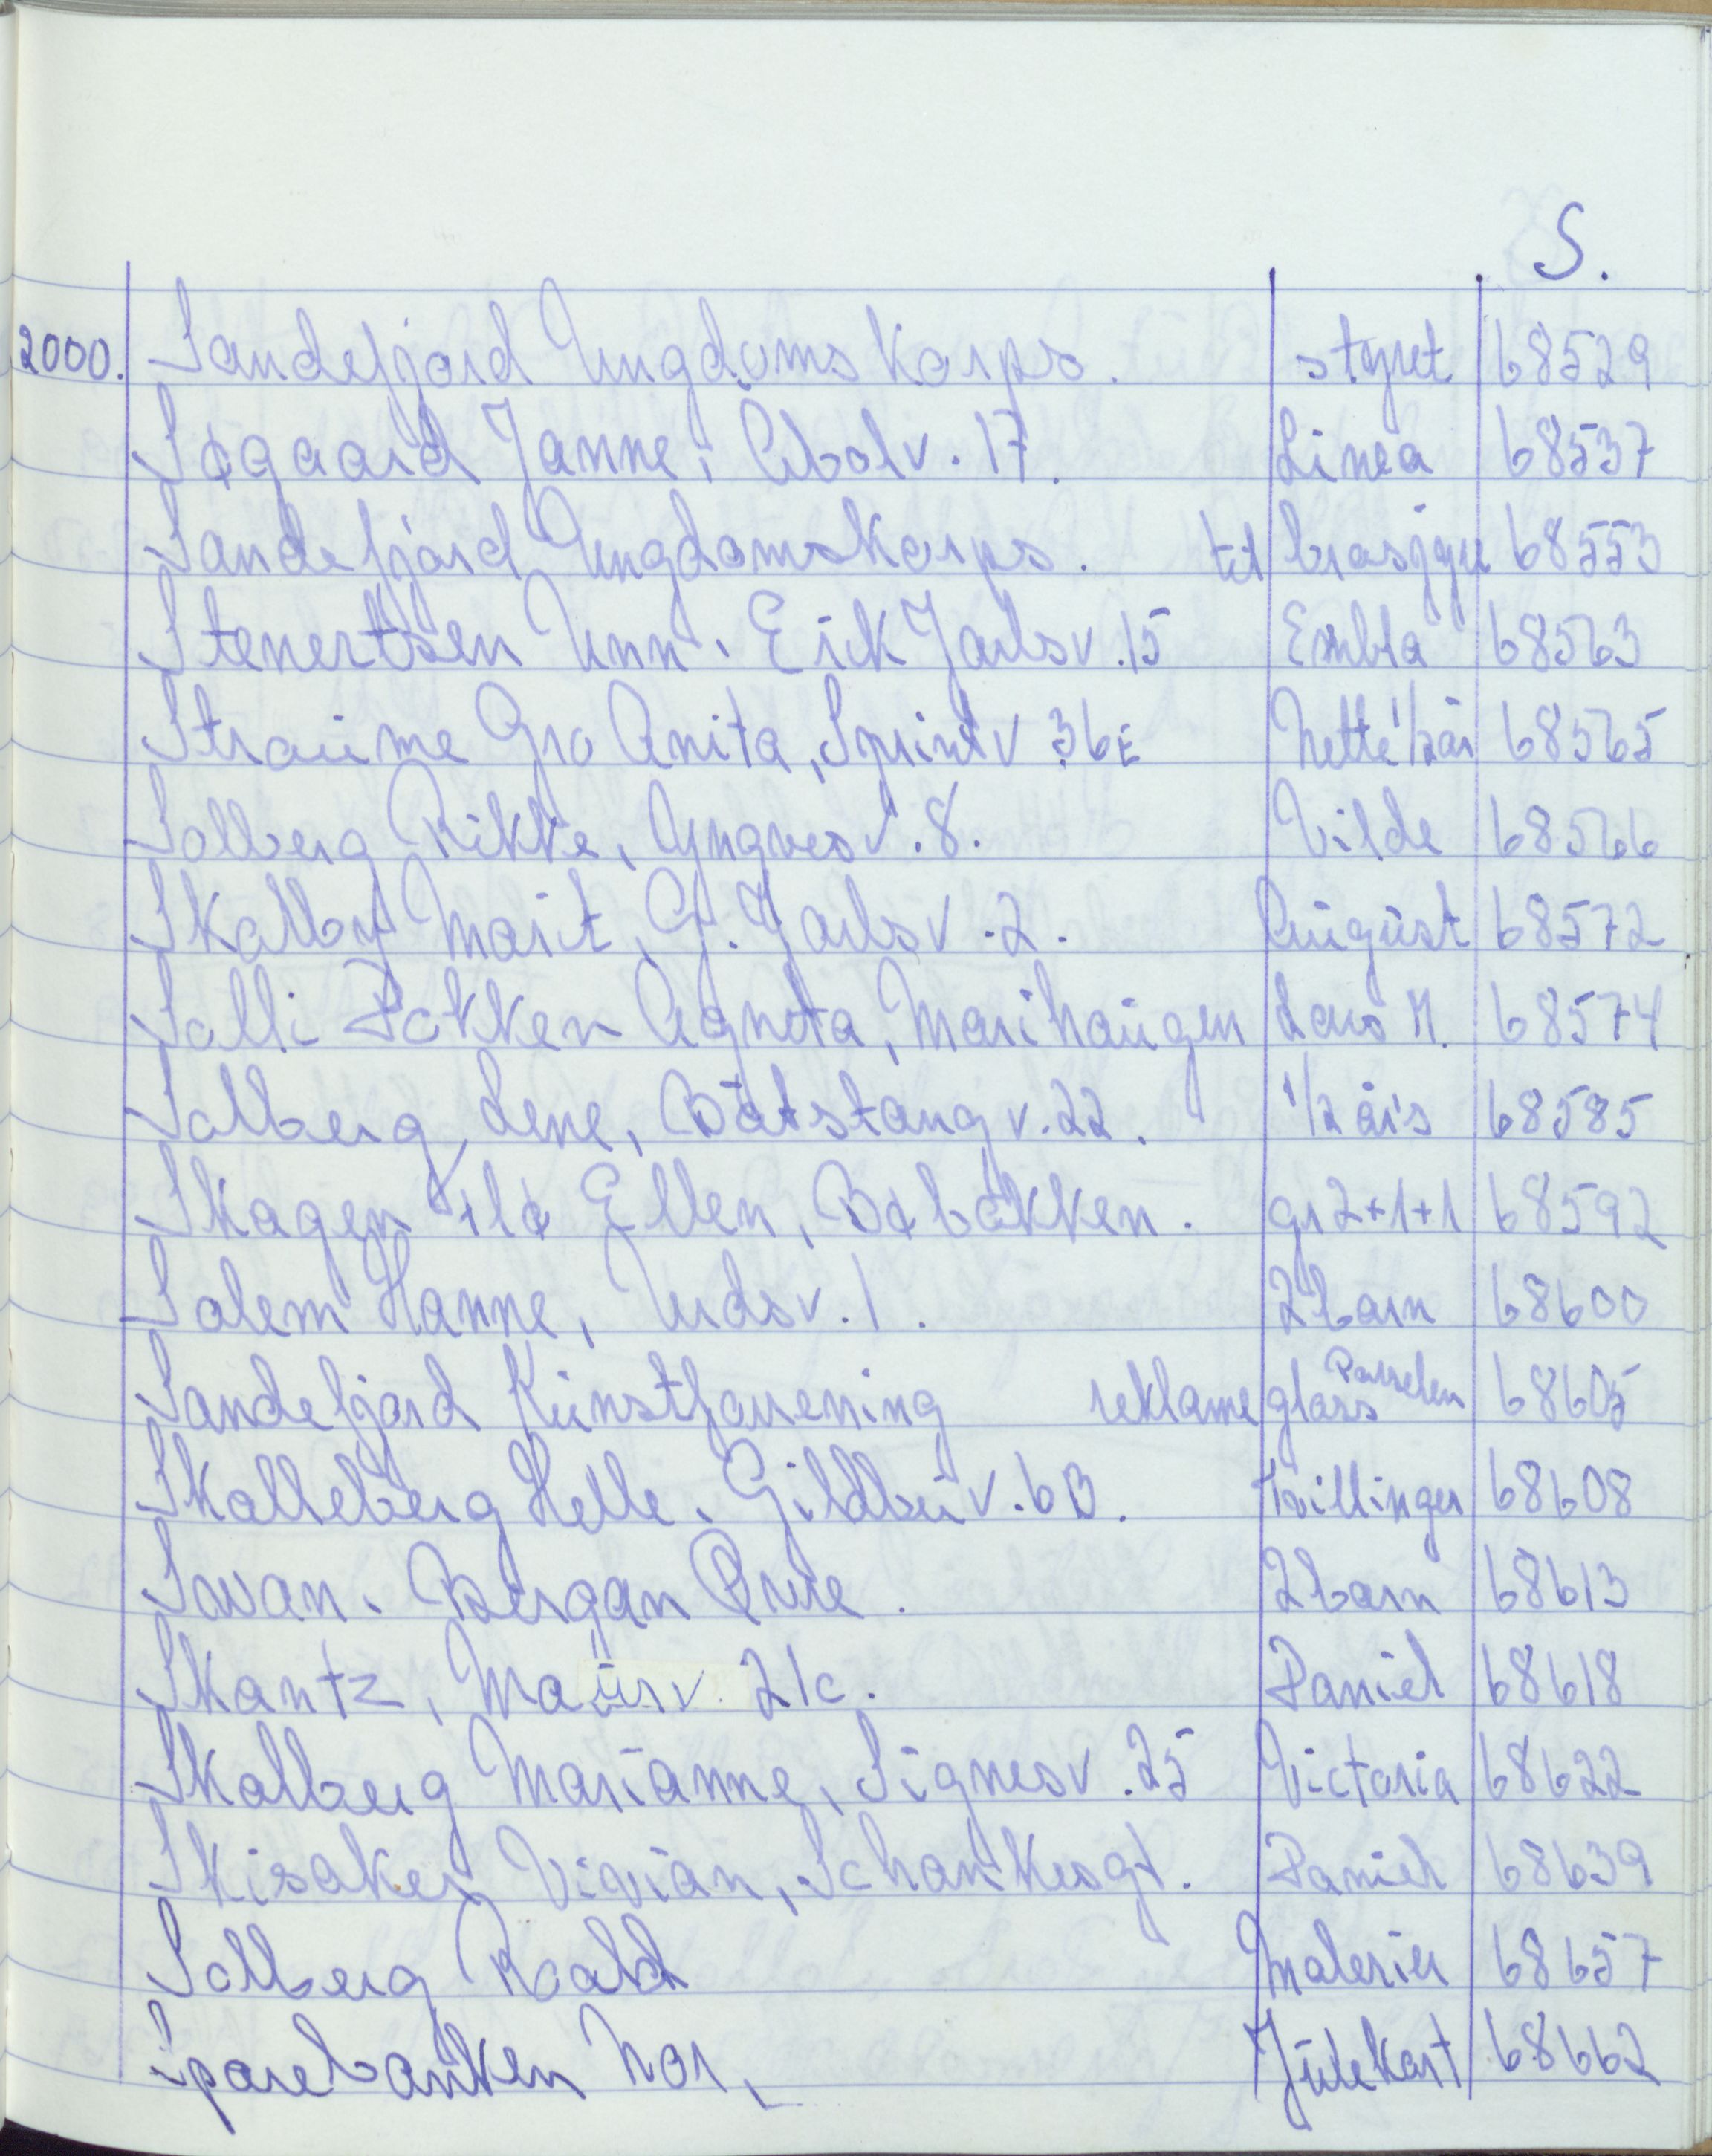 S.
2000. Sandefjord Ungdomskorps. styret 68529
Søgaard Janne, Abolv. 17. Linea 68537
Sandefjord Ungdomskorps. til brasjyu 68553
Stenertsen Unn. Eirik Jarlsv. 15 Embla 68563
Straume Gro Anita, Sprintv 36E Nette 1/2 år 68565
Solberg Rikke, Yngves v. 8. Vilde 68566
Skalby Marit, G. Jarlsv. 2. August 68572
Solli Bakken Agneta, Marihaugen Lars M. 68574
Solberg Lene, Båtstangv. 22. 1/2 års 68585
Skagen Ellen, Bøbakken. gr 2+1+1 68592
Solem Hanne, Urdsv. 1. 2 barn 68600
Sandefjord Kunstforening reklame glass Parselen 68605
Skalleberg Helle. Gildbuv. 6B. tvillinger 68608
Swan. Bergan 2 barn 68613
Skantz, Maurv. 21c. Daniel 68618
Skalberg Marianne, Signesv. 25 Victoria 68622
Skisaker Vivian, Schankesgt. Daniel 68639
Solberg Roald Malerier 68657
Sparebanken Nor, Julekort 68662